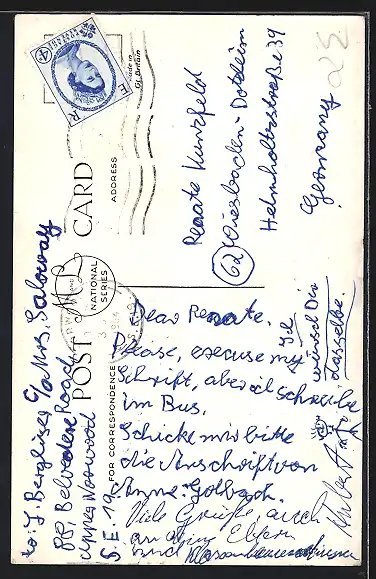 POST CARD
FOR CORRESPONDENCE
ADDRESS
NATIONAL
SERIES
Made in
Gt. Britain
E R
Renate Kunzfeld
(62) Wiesbaden-Dotzheim
Helmholtzstraße 39
Germany
Dear Renate.
Please, excuse my
Schrift, aber ich schreibe
im Bus.
Schicke mir bitte
die Anschrift von
Anne
Viele Grüße, auch
an deine Eltern
und
Ich
wünsch Dir
dasselbe
co: J. Bergliser c/o Mrs. Galoway
88, Belvedere Road
Upper Norwood
S.E. 19